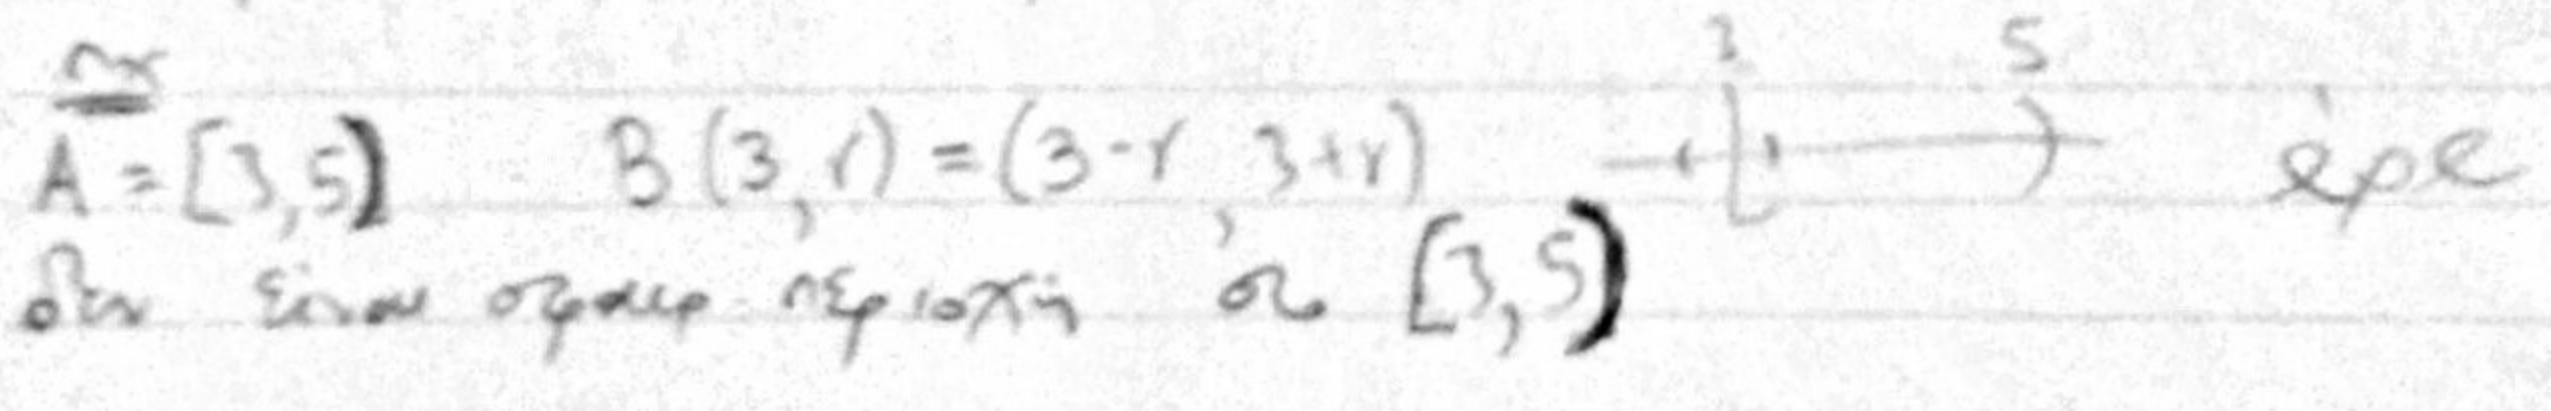 πχ
A = [3,5) B(3,r) = (3-r, 3+r) 3 5 άρα
δεν είναι σφαιρ. περιοχή το [3,5)